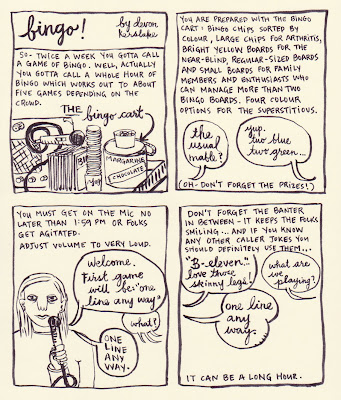 bingo!
by devon
kerslake
SO- TWICE A WEEK YOU GOTTA CALL
A GAME OF BINGO. WELL, ACTUALLY
YOU GOTTA CALL A WHOLE HOUR OF
BINGO WHICH WORKS OUT TO ABOUT
FIVE GAMES DEPENDING ON THE
CROWD.
THE bingo cart
MARGARINE
CHOCOLATE
YOU ARE PREPARED WITH THE BINGO
CART: BINGO CHIPS SORTED BY
COLOUR, LARGE CHIPS FOR ARTHRITIS,
BRIGHT YELLOW BOARDS FOR THE
NEAR-BLIND, REGULAR-SIZED BOARDS
AND SMALL BOARDS FOR FAMILY
MEMBERS AND ENTHUSIASTS WHO
CAN MANAGE MORE THAN TWO
BINGO BOARDS. FOUR COLOUR
OPTIONS FOR THE SUPERSTITIOUS.
the
usual
mable?
yup.
two blue
two green...
(OH- DON'T FORGET THE PRIZES!)
YOU MUST GET ON THE MIC NO
LATER THAN 1:59 PM OR FOLKS
GET AGITATED.
ADJUST VOLUME TO VERY LOUD.
Welcome.
First game
will be: "one
line any way"
what?
ONE
LINE
ANY
WAY.
DON'T FORGET THE BANTER
IN BETWEEN- IT KEEPS THE FOLKS
SMILING... AND IF YOU KNOW
ANY OTHER CALLER JOKES YOU
SHOULD DEFINITELY USE THEM...
"B-eleven."
love those
skinny legs!
what are
we
playing?
one line
any
way.
IT CAN BE A LONG HOUR.